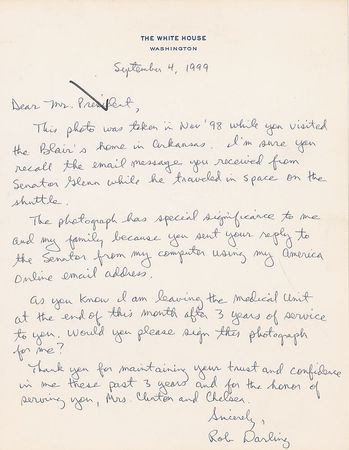 THE WHITE HOUSE
WASHINGTON
September 4, 1999
Dear Mr. President,
This photo was taken in Nov '98 while you visited
the Blair's home in Arkansas. I'm sure you
recall the email message you received from
Senator Glenn while he traveled in space on the
shuttle.
The photograph has special significance to me
and my family because you sent your reply to
the Senator from my computer using my America
Online email address.
As you know I am leaving the medical Unit
at the end of this month after 3 years of service
to you. Would you please sign this photograph
for me?
Thank you for maintaining your trust and confidence
in me these past 3 years and for the honor of
serving you, Mrs. Clinton and Chelsea.
Sincerely,
Rob Darling